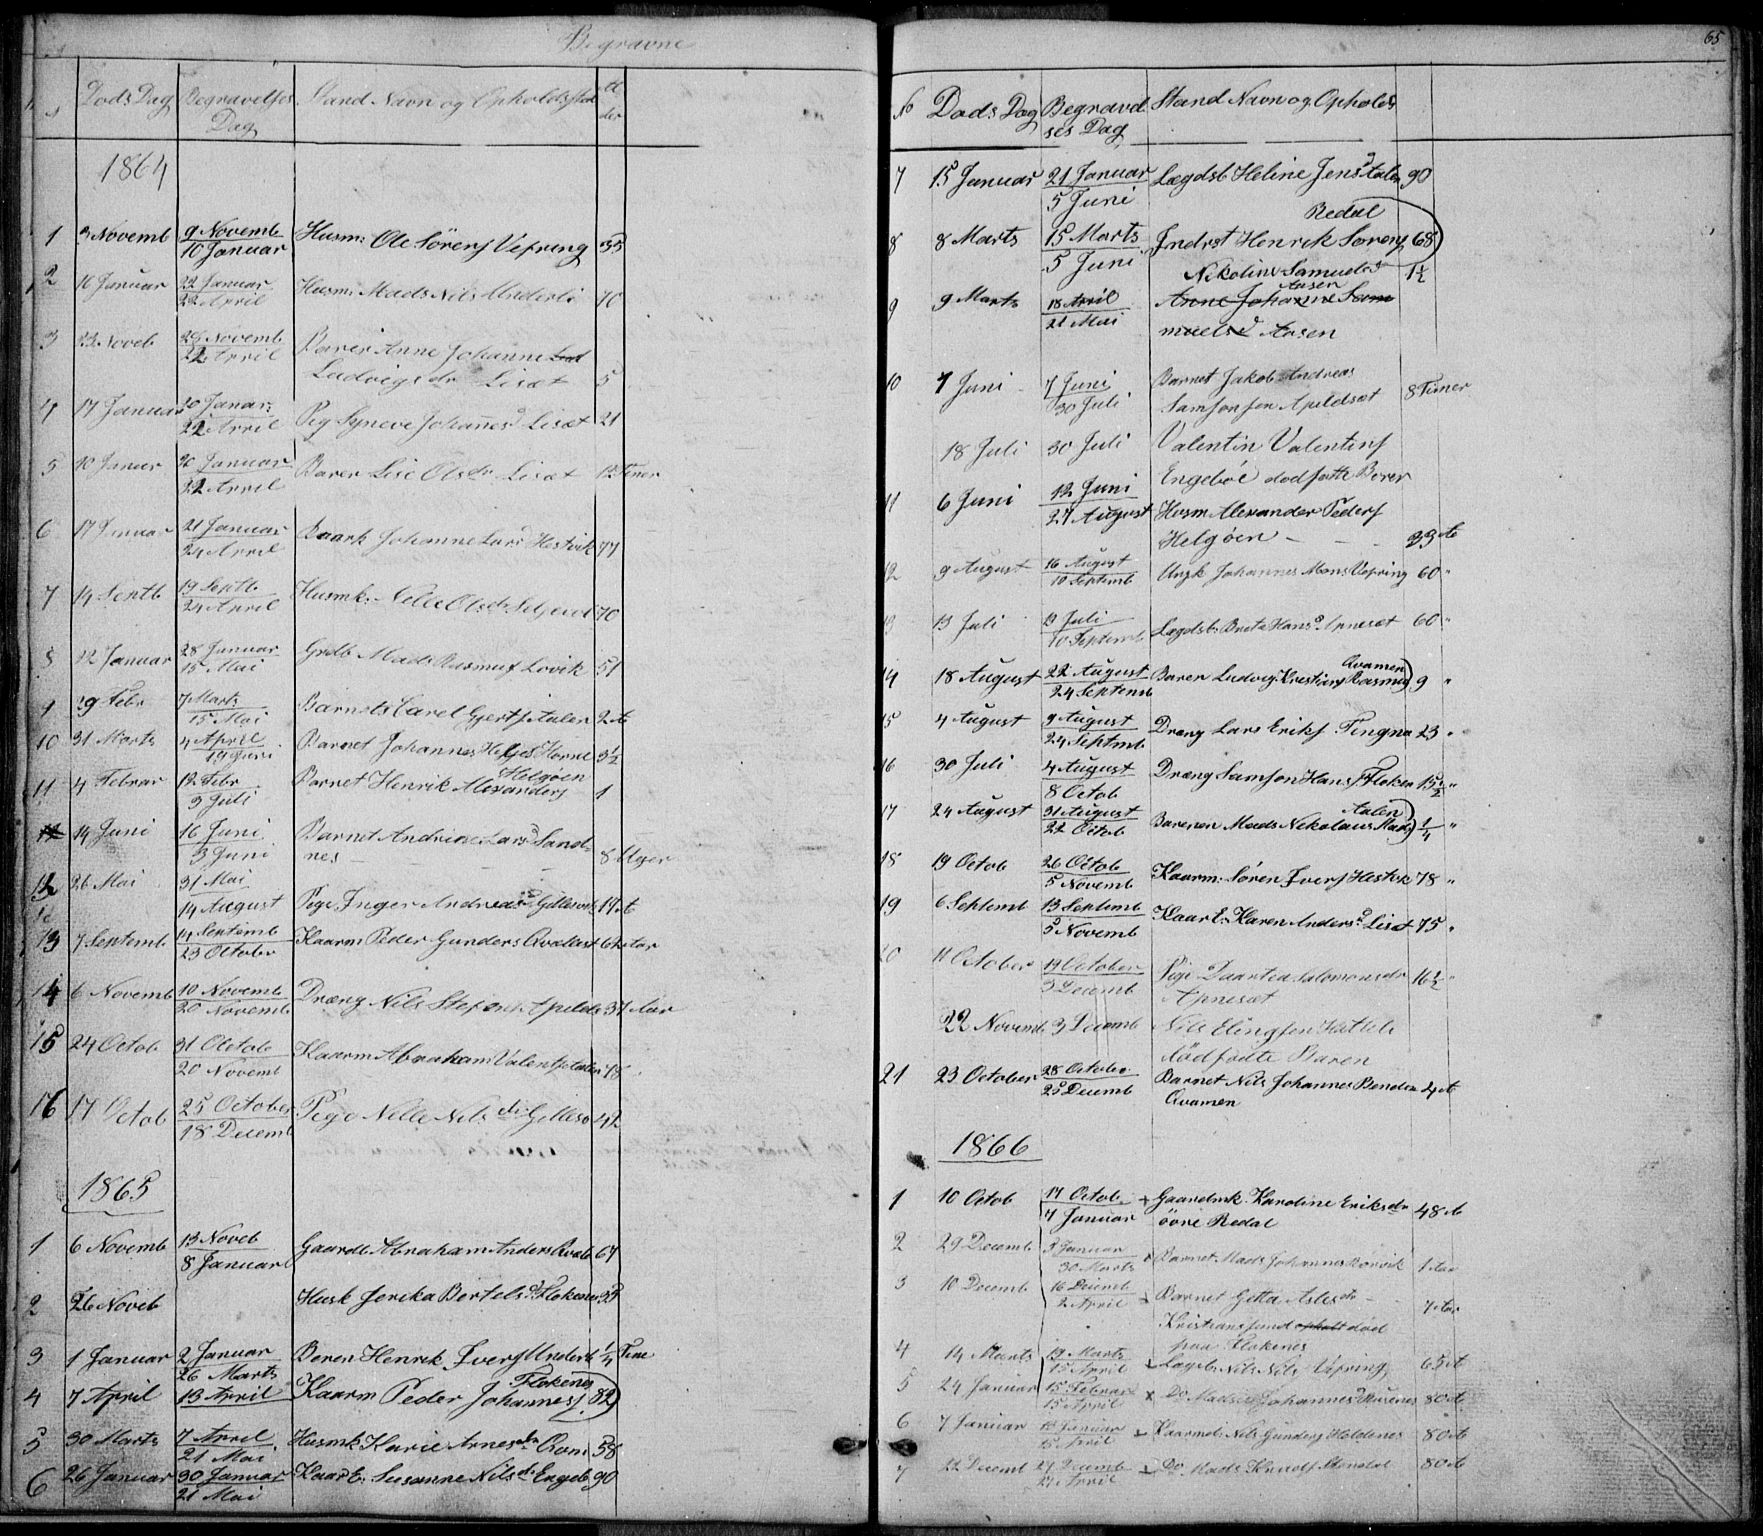 Begravne
Døds Dag Begravelses Dag Stand Navn og Opholdssted
1864
1 3 Novemb 9 Novemb 10 Januar Husm: Ole Sørens Vefring 35
2 16 Januar 22 Januar 22 April Husm: Mads Nils Underli 70
3 23 Noveb 29 Novemb 22 April Barer Anne Johanne
Ludvigsdr Lisæt 5
4 17 Januar 20 Januar 22 April Pig Syneve Johannesd Lisæt 21
5 10 Januar 20 Januar 22 April Barer Lise Olsdr Lisæt 12 Timer
6 17 Januar 21 Januar 24 April Kaark Johanne Larsd Hestvik 77
7 14 Septb 19 Septb 24 April Husmk: Nille Olsdr 70
8 22 Januar 28 Januar 15 Mai Grdb Mads Rasmus Lovik 51
9 29 Febr 7 Marts 15 Mai Barnets Carel Gjerts Aalen 2 A
10 31 Marts 4 April 19 Juni Barnet Johannes Helges Horne 3½
11 4 Februar 12 Febr 3 Juli Barnet Henrik Alexanders Helgøen 1
14 Juni 16 Juni 3 Juni Barnet Andrine Larsd Sand-
nes — 8 Uger
12 26 Mai 31 Mai 14 August Pige Inger Andreasd 17 A
13 7 Septemb 14 Septemb 23 Octobr Kaarm Peder Gunders 62 Aar
14 6 Novemb 10 Novemb 20 Novemb Dræng Nils Stefens Apelds 37 Aar
15 24 Octob 31 Octob 20 Novemb Kaarm Abraham Valents 78
16 17 Octob 25 October 18 Decemb Pige Nille Nilsdr 42
1865
1 6 Novemb 13 Noveb 8 Januar Gaardb Abraham Anders 67
2 26 Noveb Husk Jerika Bertelsd Flokenes 33
3 1 Januar 2 Januar 26 Marts Boren Henrik Ivers Underli ¼ Time
4 7 April 13 April Kaarm Peder Johannes Flokenes 82
5 30 Marts 7 April 21 Mai Husmk Karie Arnesdr 58
6 26 Januar 30 Januar 21 Mai Kaar E: Susanne Nilsd Engeb 90
65
№ Døds Dag Begravelses Dag Stand Navn og Opholds
7 15 Januar 21 Januar 5 Juni Lægdsl Heline Jensd Aalen 90
8 8 Marts 15 Marts 5 Juni Indrst Henrik Sorens Redal 68
Nikoline Samuelsd Aasen 1½
9 9 Marts 18 April 21 Mai Anne Johanne Sam
muelsd Aasen
10 7 Juni 7 Juni 30 Juli Barnet Jakob Andreas
Samsonsen Apeldsæt 8 Timer
18 Juli 30 Juli Valentin Valentins
Engebøe dødfødte Borer
11 6 Juni 12 Juni 27 August Husm Alexander Peders
Helgøen 33 A
12 9 August 16 August 10 Septemb Ungk Johannes Mons Vefring 60 "
13 13 Juli Juli 10 Septemb Lægdsl: Brite Hansd 60 "
14 18 August 22 August 24 Septemb Barer Ludvig Kristians Rasmus Qvamen 9 "
15 4 August 9 August 24 Septmb Dræng Lars Eriks Tingna 23 "
16 30 Juli 4 August 8 Octob Dræng Samson Hans Floken 15½ "
17 24 August 31 August 22 Octob Barenen Mads Nikolaus Mads Aalen ¼ "
18 19 Octob 26 Octob 5 Novemb Kaarm: Sören Ivers Hestvik 78 "
19 6 Septemb 13 Septemb 5 Novemb Kaar E: Karen Andersd Lisæt 75 "
20 11 October 19 October 3 Decemb Pige Daartea Salomonsdr 16½ "
Apnesæt
22 Novemb 3 Decemb Nils Elingsen
dødfødte Baren
21 23 October 28 Octobr 25 Decemb Barnet Nils Johannes 4 A
Qvamen
1866
1 10 Octob 17 Octob 7 Januar Gaardmk Karoline Eriksdr 48 A
övre Redal
2 29 Decemb 3 Januar 30 Marts Barnet Mads Johannes 1 Aar
3 10 Decemb 16 Decemb 2 April Barnet Gitta Aslesdr 7 Aar
Kristiansund død
paa Flokenes
4 14 Marts 19 Marts 15 April Lægdl: Nils Nils Vefring 65 A
5 24 Januar 15 Februar 15 April Do Johannesd 80 A
6 7 Januar 15 April Kaarmd: Nils Gunders Holdenes 80 A
7 22 Decemb 27 Decemb 22 April Do Mads 80 A